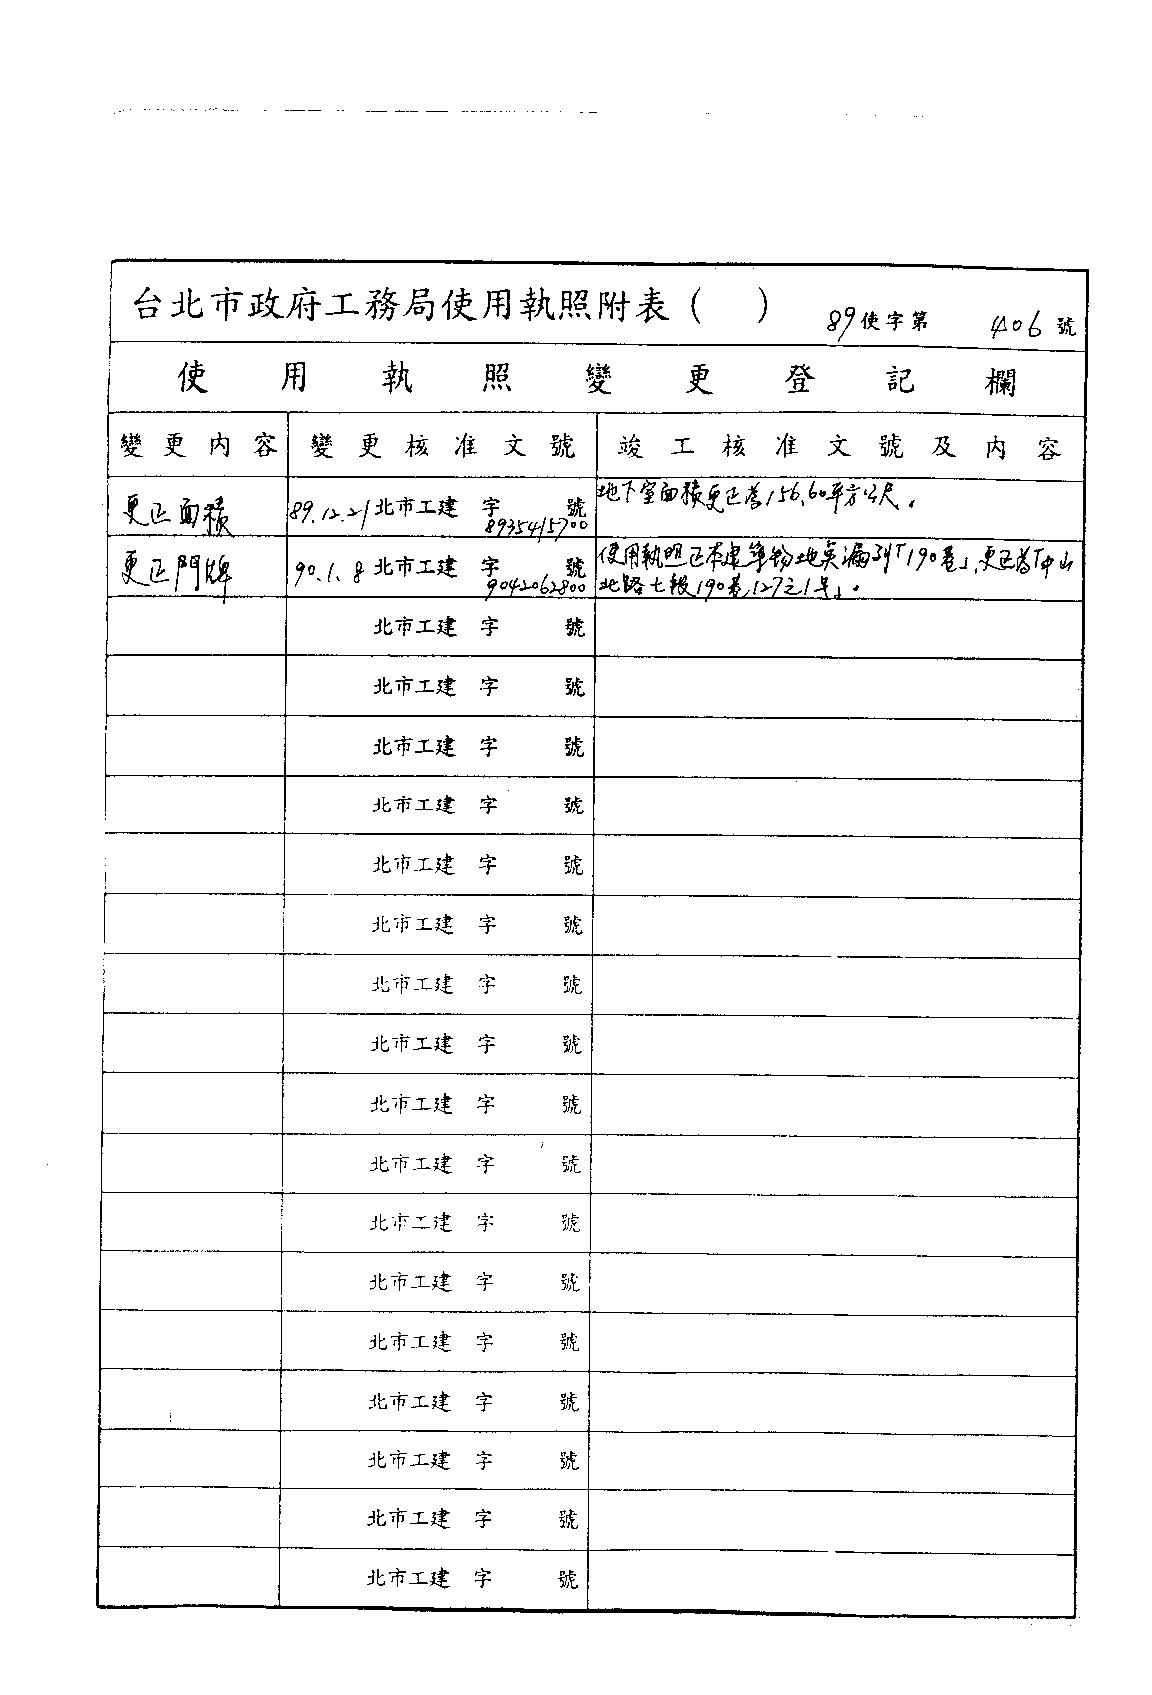 台北市政府工務局使用執照附表（　　） 89使字第 406 號
使用執照變更登記欄
變更內容 變更核准文號 竣工核准文號及內容
更正面積 89.12.21 北市工建 字 8935415700 號 地下室面積更正為156.60平方公尺。
更正門牌 90.1.8 北市工建 字 9042062800 號 使用執照正本建築物地點漏列「190巷」,更正為「中山
北路七段190巷,127之1号」。
北市工建 字 號
北市工建 字 號
北市工建 字 號
北市工建 字 號
北市工建 字 號
北市工建 字 號
北市工建 字 號
北市工建 字 號
北市工建 字 號
北市工建 字 號
北市工建 字 號
北市工建 字 號
北市工建 字 號
北市工建 字 號
北市工建 字 號
北市工建 字 號
北市工建 字 號